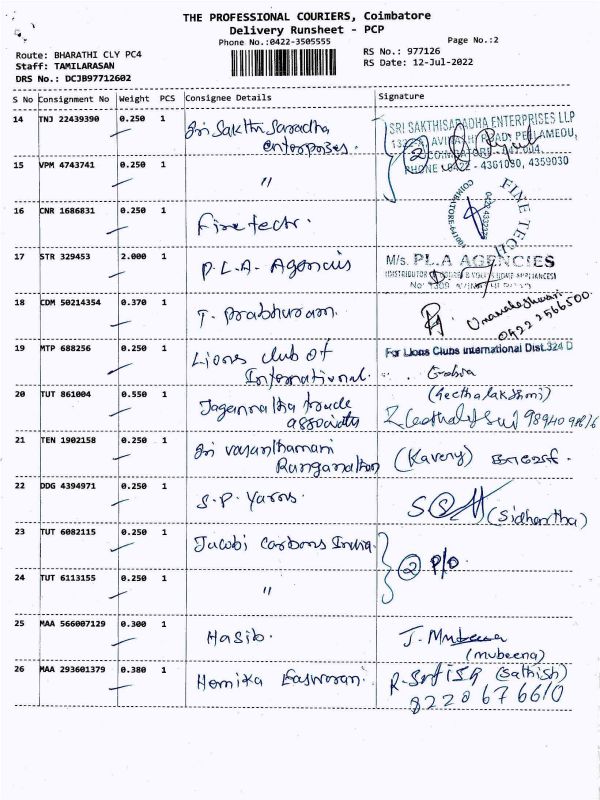 THE PROFESSIONAL COURIERS, Coimbatore
Delivery Runsheet - PCP
Phone No.:0422-3505555
Page No.:2
Route: BHARATHI CLY PC4
RS No.: 977126
Staff: TAMILARASAN
RS Date: 12-Jul-2022
DRS No.: DCJB97712602
S No Consignment No Weight PCS Consignee Details Signature
14 TNJ 22439390 0.250 1 Sri Sakthi Saradha enterprises.
SRI SAKTHISARADHA ENTERPRISES LLP
COIMBATORE - 641 004.
PHONE : 0422 - 4361030, 4359030
2
15 VPM 4743741 0.250 1 〃
16 CNR 1686831 0.250 1 Fine tech.
FINE TECH
COIMBATORE
17 STR 329453 2.000 1 P.L.A. Agencies
M/s. P.L.A AGENCIES
18 CDM 50214354 0.370 1 T. Prabhuram.
Umamaheshwari
0422 2566500
19 MTP 688256 0.250 1 Lions club of International.
For Lions Clubs International Dist.324 D
20 TUT 861004 0.550 1 Jagannatha trade associates
(Geethalakshmi)
21 TEN 1902158 0.250 1 Sri vasanthamani Ranganathan
(Kavery) காவேரி.
22 DDG 4394971 0.250 1 S.P. Yarns.
(Sidhartha)
23 TUT 6082115 0.250 1 Jacobi Carbons India.
2 P/O.
24 TUT 6113155 0.250 1 〃
25 MAA 566007129 0.300 1 Hasib.
(mubeena)
26 MAA 293601379 0.380 1 Hemika Easwaran.
R-Sathish (Sathish)
8220676610